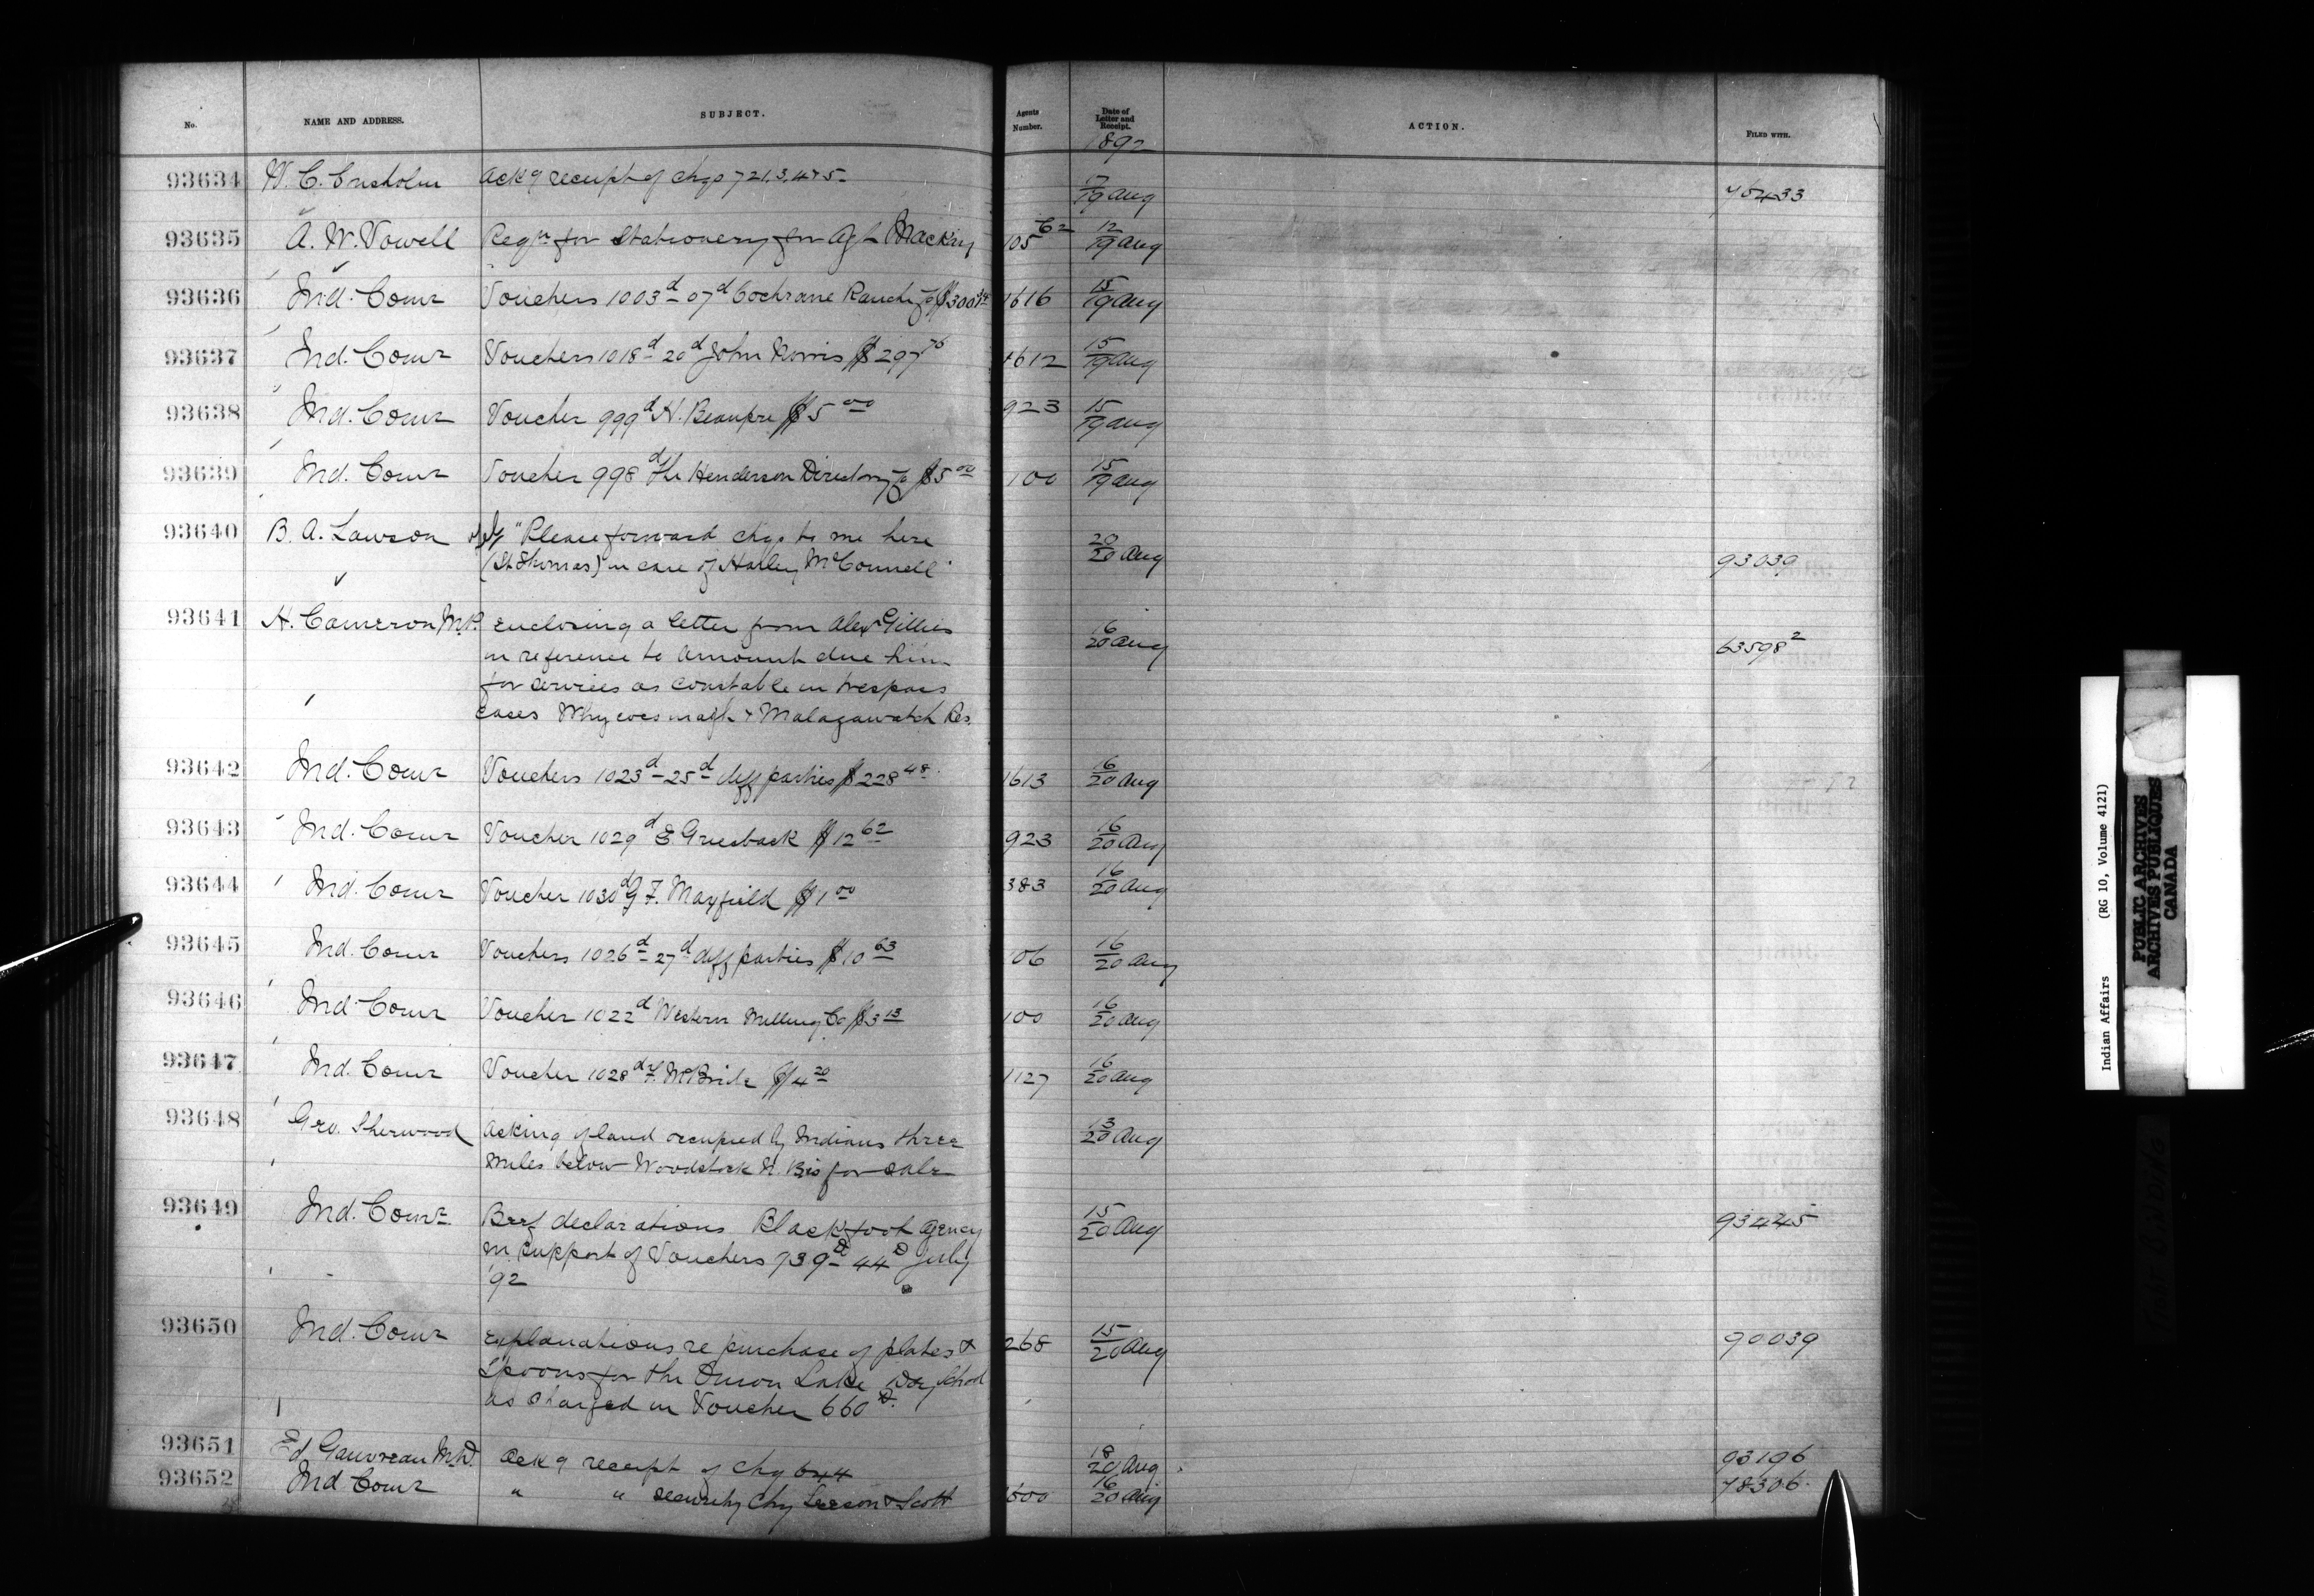 No. NAME AND ADDRESS. SUBJECT. Agents Number. Date of Letter and Receipt. ACTION. FILED WITH.
1892
93634 W. C. Chisholm Ackg receipt of chqs 721, 3, 4 & 5 17/19 Aug 75433
93635 A. W. Vowell Reqn for Stationery for Agt Mackay 105 C2 12/19 Aug
93636 Ind. Comr Vouchers 1003d - 07d Cochrane Ranche Co $300 1616 15/19 Aug
93637 Ind. Comr Vouchers 1018d - 20d John Norris $297 76 1612 15/19 Aug
93638 Ind. Comr Voucher 999d H. Beaupre $5 00 923 15/19 Aug
93639 Ind. Comr Voucher 998d The Henderson Directory Co $5 00 100 15/19 Aug
93640 B. A. Lawson "Please forward chq. to me here
(St Thomas) in care of Harley McConnell" 20/20 Aug 93039
93641 H. Cameron M.P. Enclosing a letter from Alexr Gillies
in reference to amount due him 16/20 Aug 63598 2
for services as constable in trespass
cases Whycocomagh & Malagawatch Res.
93642 Ind. Comr Vouchers 1023d - 25d diff parties $228 48 1613 16/20 Aug
93643 Ind. Comr Voucher 1029d E Griesback $12 62 923 16/20 Aug
93644 Ind. Comr Voucher 1030d G F. Mayfield $1 00 383 16/20 Aug
93645 Ind. Comr Vouchers 1026d - 27d diff parties $10 63 106 16/20 Aug
93646 Ind. Comr Voucher 1022d Western Milling Co $3 13 100 16/20 Aug
93647 Ind. Comr Voucher 1028d F. McBride $4 20 1127 16/20 Aug
93648 Geo. Sherwood Asking if land occupied by Indians three 13/20 Aug
miles below Woodstock N. B. is for sale
93649 Ind. Comr Beef declarations Blackfoot Agency 15/20 Aug 93445
in support of Vouchers 739D - 44D July
'92
93650 Ind. Comr Explanations re purchase of plates & 268 15/20 Aug 90039
Spoons for the Onion Lake Day School
as charged in Voucher 660D.
93651 Ed Gauvreau M.D. Ackg receipt of chq 644 18/20 Aug 93196
93652 Ind Comr " " security Chq Leeson & Scott 1600 16/20 Aug 78306
Indian Affairs (RG 10, Volume 4121)
PUBLIC ARCHIVES
ARCHIVES PUBLIQUES
CANADA